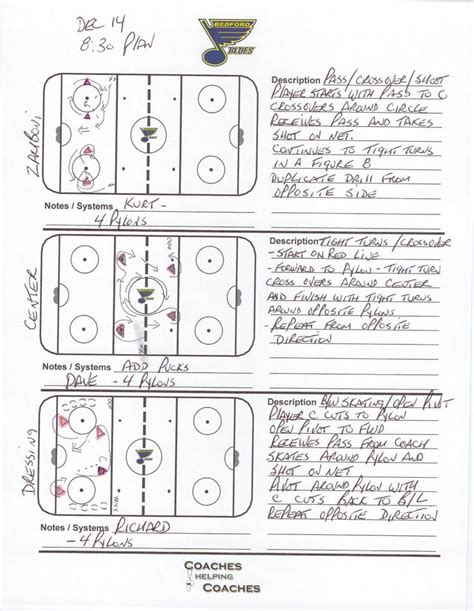 DEC 14
8:30 PLAN
BEDFORD
BLUES
ZAMBONI
Description PASS/CROSSOVER/SHOOT
PLAYER STARTS WITH PASS TO C
CROSSOVERS AROUND CIRCLE
RECEIVES PASS AND TAKES
SHOT ON NET.
CONTINUES TO TIGHT TURNS
IN A FIGURE 8
DUPLICATE DRILL FROM
OPPOSITE SIDE
Notes / Systems KURT -
- 4 PYLONS
CENTER
Description TIGHT TURNS/CROSSOVER
- START ON RED LINE
- FORWARD TO PYLON - TIGHT TURN
CROSS OVERS AROUND CENTER
AND FINISH WITH TIGHT TURNS
AROUND OPPOSITE PYLONS
- REPEAT FROM OPPOSITE
DIRECTION
Notes / Systems ADD PUCKS
DAVE - 4 PYLONS
DRESSING
Description B/W SKATING/OPEN PIVOT
PLAYER C CUTS TO PYLON
OPEN PIVOT TO FWD
RECEIVES PASS FROM COACH
SKATES AROUND PYLON AND
SHOT ON NET
PIVOT AROUND PYLON WITH
C CUTS BACK TO B/L
REPEAT OPPOSITE DIRECTION
Notes / Systems RICHARD
- 4 PYLONS
COACHES
HELPING
COACHES